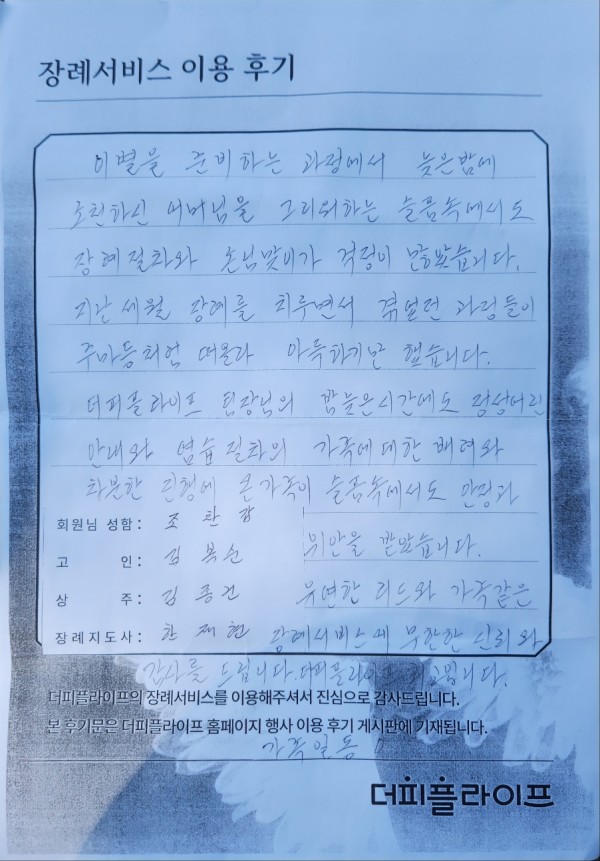 장례서비스 이용 후기
이별을 준비하는 과정에서 늦은밤에
소천하신 어머님을 그리워하는 슬픔속에서도
장례절차와 손님맞이가 걱정이 많았습니다.
지난세월 장례를 치루면서 겪었던 과정들이
주마등처럼 떠올라 아득하기만 했습니다.
더피플라이프 팀장님의 밤늦은시간에도 정성어린
안내와 염습절차의 가족에대한 배려와
차분한 진행에 온가족이 슬픔속에서도 안정과
회원님 성함: 조찬갑
위안을 받았습니다.
고 인: 김복순
상 주: 김종건
유연한 리드와 가족같은
장례지도사: 한재현 장례서비스에 무한한 신뢰와
감사를 드립니다. 더피플라이프 최고입니다.
더피플라이프의 장례서비스를 이용해주셔서 진심으로 감사드립니다.
본 후기문은 더피플라이프 홈페이지 행사 이용 후기 게시판에 기재됩니다.
가족일동
더피플라이프